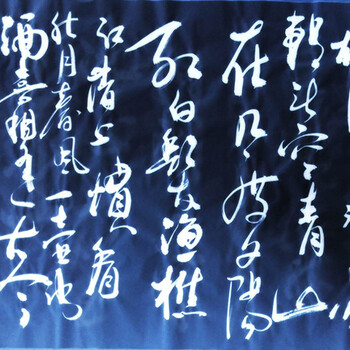 轉头空青山
在几度夕陽
红白髮漁樵
江渚上慣看
秋月春風一壺濁
酒喜相逢古今